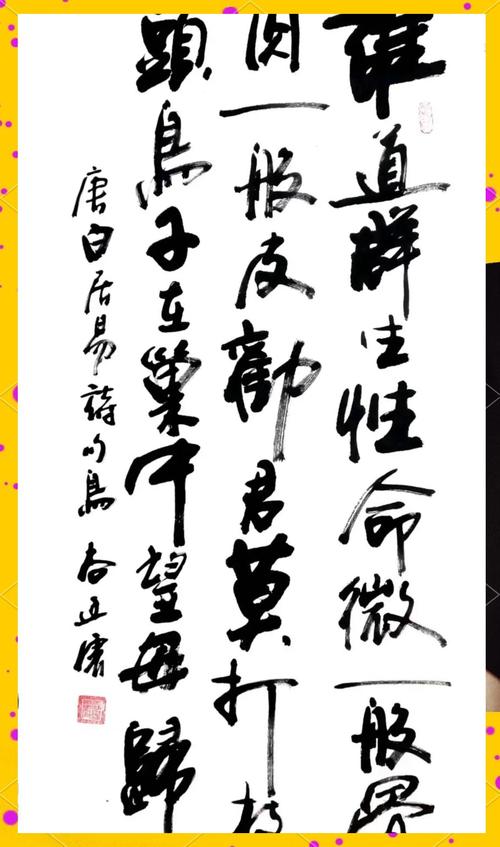 誰道群生性命微一般骨
肉一般皮勸君莫打枝
頭鳥子在巢中望母歸
唐白居易詩句鳥